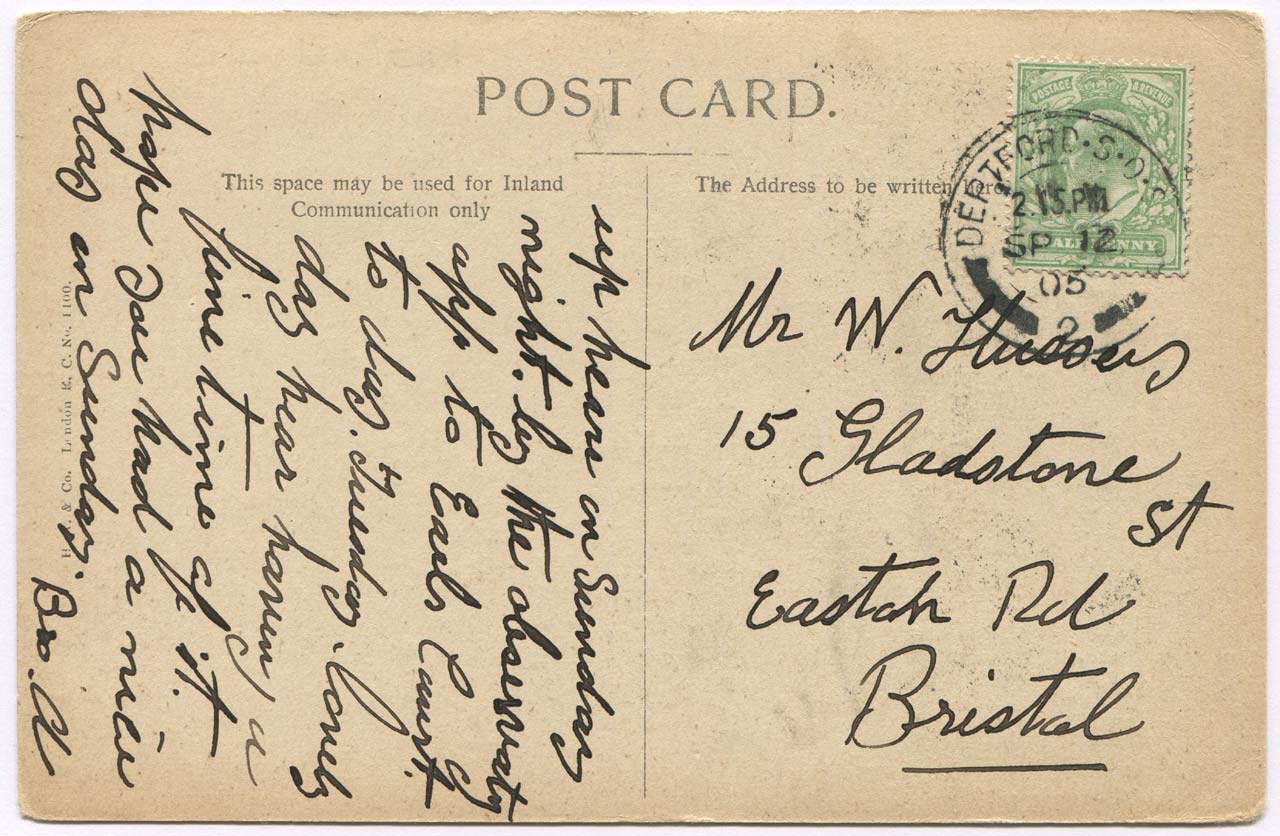 POST CARD.
This space may be used for Inland
Communication only
The Address to be written here
POSTAGE & REVENUE
HALFPENNY
DEPTFORD.S.O.
2.15.PM
SP 12
05
2
up hear on Sunday
night. by the observaty
off to Earls Court.
to day. Tuesday. Lovely
day hear having a
fine time of it.
hope You had a nice
day on Sunday.
Bro.
H. & Co. London E. C. No. 1100.
Mr W.
15 Gladstone
St
Easton Rd
Bristol